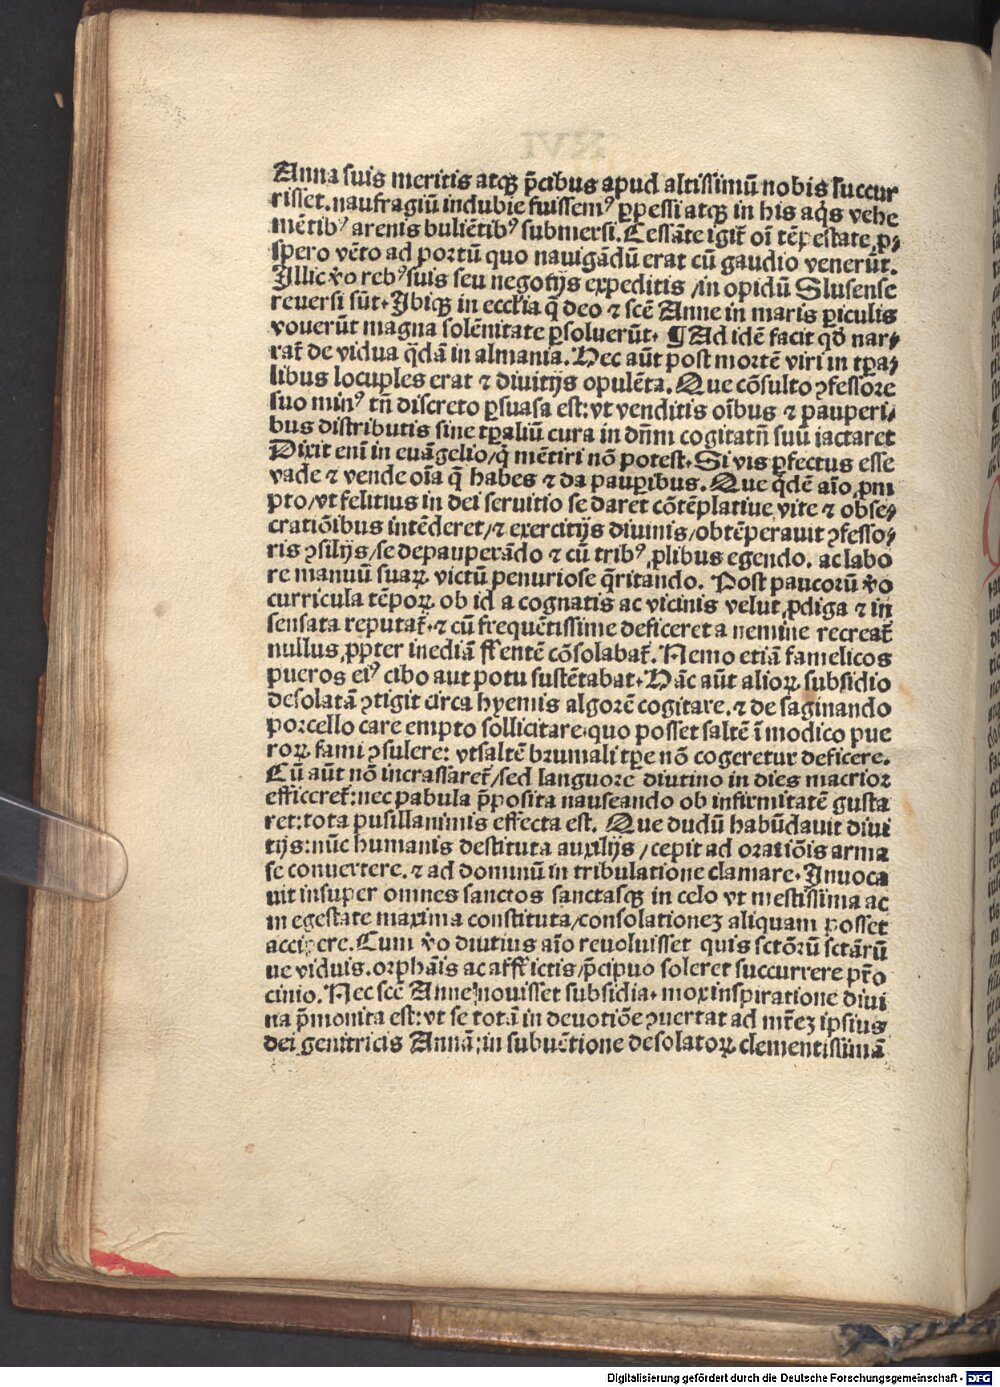 Anna suis meritis atqꝫ p̄cibus apud altissimū nobis succur
risset. naufragiū indubie fuissemꝰ ꝑpessi atqꝫ in his aq̄s vehe
mētibꝰ arenis buliētibꝰ submersi. Cessāte igit̄ oī tēpestate, ꝓ⸗
spero vēto ad portū quo nauigādū erat cū gaudio venerūt.
Illic v̄o rebꝰ suis seu negotijs expeditis /in opidū Slusense
reuersi sūt. Ibiqꝫ in ecclīa q̄ deo ⁊ scē Anne in maris ꝑiculis
vouerūt magna solēnitate ꝑsoluerūt. ¶ Ad idē facit qd̄ nar⸗
rat̄ de vidua q̄dā in almania. Hec aūt post mortē viri in tꝑa⸗
libus locuples erat ⁊ diuitijs opulēta. Que cōsulto ꝯfessore
suo minꝰ tn̄ discreto ꝑsuasa est: vt venditis oībus ⁊ pauperi⸗
bus distributis sine tꝑaliū cura in dn̄m cogitatū suū iactaret
Dixit enī in euāgelio/q̄ mētiri nō potest. Si vis ꝑfectus esse
vade ⁊ vende oīa q̄ habes ⁊ da pauꝑibus. Que q̄dē aīo ꝓm
pto/vt felitius in dei seruitio se daret cōtēplatiue vite ⁊ obse⸗
cratiōibus intēderet/⁊ exercitijs diuinis/obtēperauit ꝯfesso⸗
ris ꝯsilijs/se depauperādo ⁊ cū tribꝰ ꝓlibus egendo. ac labo
re manuū suaꝝ victū penuriose q̄ritando. Post paucorū v̄o
curricula tēpoꝝ ob id a cognatis ac vicinis velut ꝓdiga ⁊ in
sensata reputat̄. ⁊ cū frequētissime deficeret a nemine recreat̄
nullus ꝓpter inediā flentē cōsolabat̄. Nemo etiā famelicos
pueros eiꝰ cibo aut potu sustētabat. Hāc aūt alioꝝ subsidio
desolatā ꝯtigit circa hyemis algorē cogitare. ⁊ de saginando
porcello care empto sollicitare. quo posset saltē ī modico pue
roꝝ fami ꝯsulere: vtsaltē brumali tꝑe nō cogeretur deficere.
Cū aūt nō incrassaret̄/sed languore diutino in dies macrior
efficeret̄: nec pabula p̄posita nauseando ob infirmitatē gusta
ret: tota pusillanimis effecta est. Que dudū habūdauit diui
tijs: nūc humanis destituta auxilijs /cepit ad oratiōis arma
se conuertere. ⁊ ad dominū in tribulatione clamare. Inuoca
uit insuper omnes sanctos sanctasqꝫ in celo vt mestissima ac
in egestate maxima constituta/consolationeꝫ aliquam posset
accipere. Cum v̄o diutius aīo reuoluisset quis sctōrū sctārū
ue viduis. orphāis ac afflictis/p̄cipuo soleret succurrere pr̄o
cinio. Nec scē Anne nouisset subsidia. mox inspiratione diui
na p̄monita est: vt se totā in deuotiōe ꝯuertat ad mr̄eꝫ ipsius
dei genitricis Annā; in subuētione desolatoꝝ clementissimā
Digitalisierung gefördert durch die Deutsche Forschungsgemeinschaft - DFG